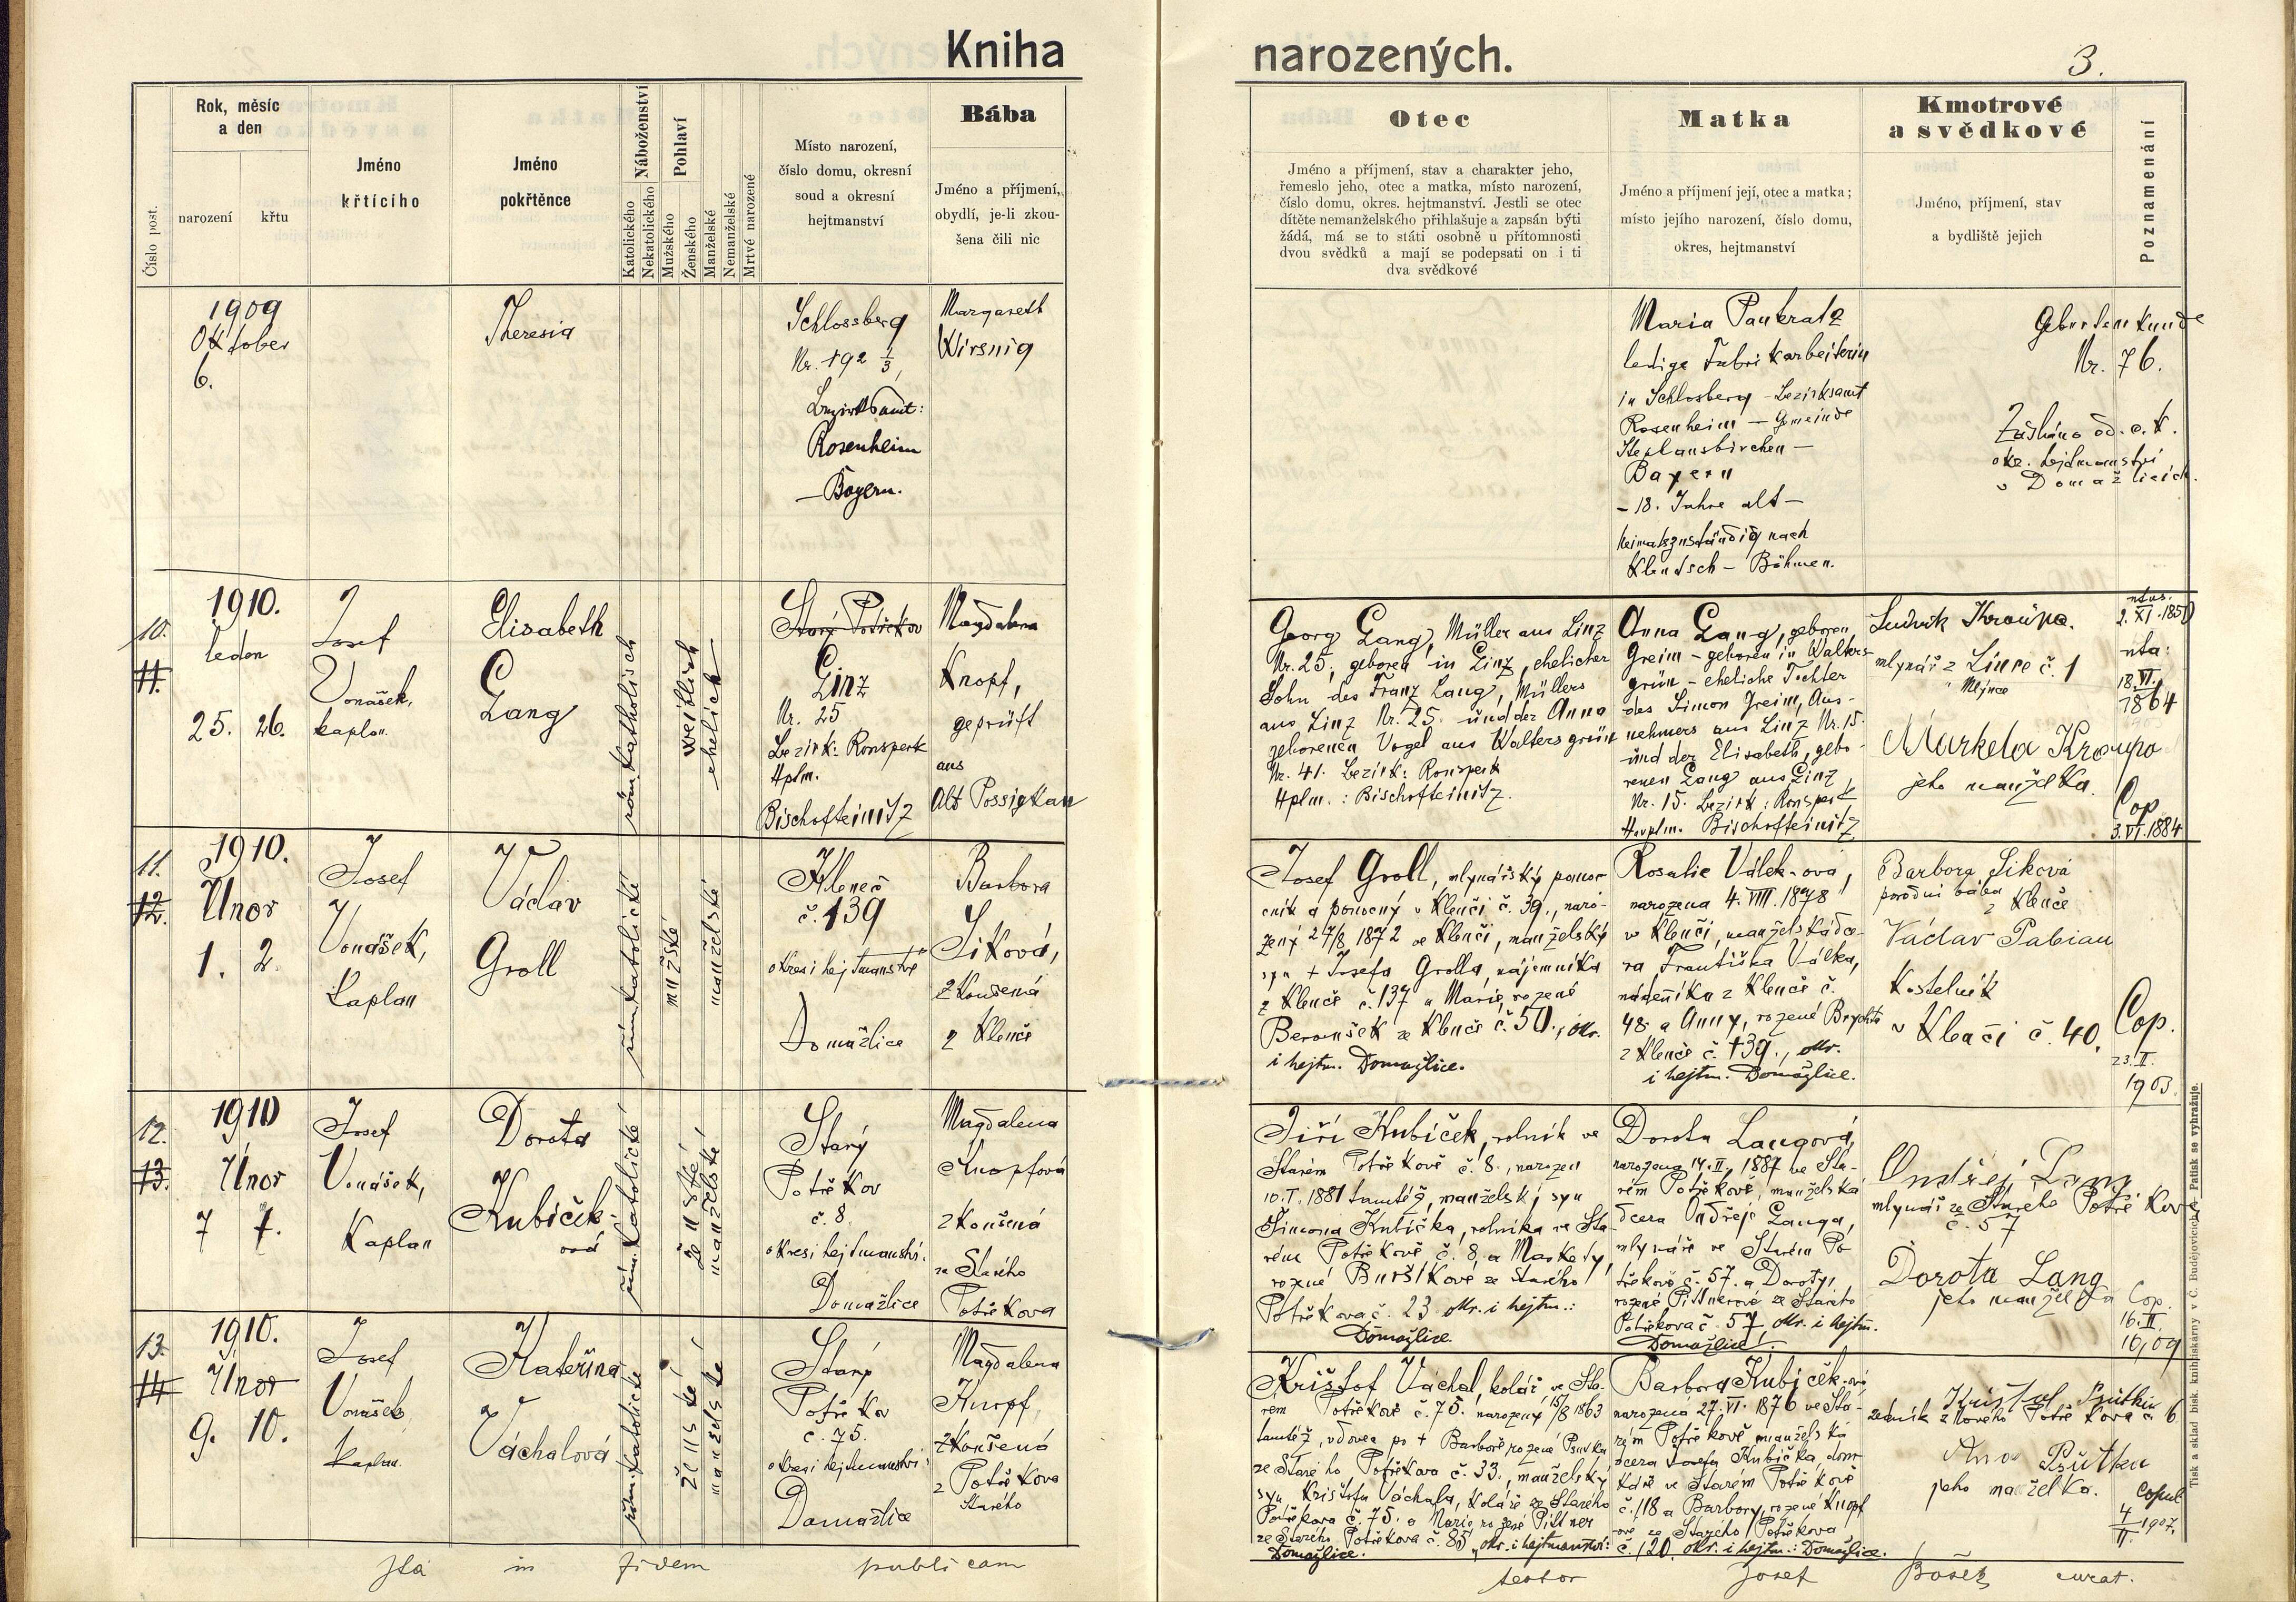 Kniha
narozených.
3.
Číslo post.
Rok, měsíc
a den
narození
křtu
Jméno
křtícího
Jméno
pokřtěnce
Náboženství
Katolického
Nekatolického
Pohlaví
Mužského
Ženského
Manželské
Nemanželské
Mrtvé narozené
Místo narození,
číslo domu, okresní
soud a okresní
hejtmanství
Bába
Jméno a příjmení,
obydlí, je-li zkou-
šena čili nic
Otec
Jméno a příjmení, stav a charakter jeho,
řemeslo jeho, otec a matka, místo narození,
číslo domu, okres. hejtmanství. Jestli se otec
dítěte nemanželského přihlašuje a zapsán býti
žádá, má se to státi osobně u přítomnosti
dvou svědků a mají se podepsati on i ti
dva svědkové
Matka
Jméno a příjmení její, otec a matka;
místo jejího narození, číslo domu,
okres, hejtmanství
Kmotrové
a svědkové
Jméno, příjmení, stav
a bydliště jejich
Poznamenání
1909
Oktober
6.
Theresia
Schlossberg
Nr. 192 1/3,
Bezirksamt:
Rosenheim
– Bayern.
Margareth
Wirsnig
Maria Pankratz
ledige Fabrikarbeiterin
in Schlosberg – Bezirksamt
Rosenheim – Gemeinde
Stephanskirchen –
Bayern
– 18. Jahre alt –
heimatszuständig nach
Klentsch – Böhmen.
Geburtenkunde
Nr. 76.
Zasláno od c. k.
okr. hejtmanství
v Domažlicích.
10.
11.
1910.
leden
25. 26.
Josef
Vonášek,
kaplan.
Elisabeth
Lang
röm. katholisch
weiblich
ehelich
Starý Potřekov
Linz
Nr. 25
Bezirk: Ronsperk
Hptm.
Bischofteinitz
Magdalena
Knopf,
geprüft
aus
Alt Possigkau
Georg Lang, Müller aus Linz
Nr. 25, geboren in Linz, ehelicher
Sohn des Franz Lang, Müllers
aus Linz Nr. 25. und der Anna
geborenen Vogel aus Waltersgrün
Nr. 41. Bezirk: Ronsperk
Hptm.: Bischofteinitz.
Anna Lang, geboren
Greim – geboren in Walters-
grün – eheliche Tochter
des Simon Greim, Aus-
nehmers aus Linz Nr. 15.
und der Elisabeth, gebo-
renen Lang aus Linz,
Nr. 15. Bezirk: Ronsperk
Hauptm. Bischofteinitz
Ludvík Kroupa.
mlynář z Lince č. 1
Mlýnce
Markéta Kroupa
jeho manželka.
ntus.
2. XI. 1850
nta:
18. VI.
1864
Cop.
3. VI. 1884
11.
12.
1910.
Únor
1. 2.
Josef
Vonášek,
Kaplan
Václav
Groll
řím. katolické
mužské
manželské
Kleneč
č. 139
okres i hejtmanství
Domažlice
Barbora
Siková,
zkoušená
z Klenče
Josef Groll, mlynářský pomoc-
cník a pomocný v Klenči č. 39., naro-
zený 27/8 1872 ve Klenči, manželský
syn + Josefa Grolla, nájemníka
z Klenče č. 137 a Marie, rozené
Beroušek ze Klenče č. 50., okr.
i hejtm. Domažlice.
Rosalie Válek-ová,
narozena 4. VIII. 1878
v Klenči, manželská dce-
ra Františka Válka,
nádeníka z Klenče č.
48. a Anny, rozené Brychta
z Klenče č. 139., okr.
i hejtm. Domažlice.
Barbora Siková
porodní bába
z Klenče
Václav Fabian
Kostelník
v Klenči č. 40.
Cop.
23. II.
1903.
12.
13.
1910
Únor
7 7.
Josef
Vonášek,
Kaplan
Dorota
Kubíček-
ová
řím. katolické
ženské
manželské
Starý
Potřekov
č. 8.
okres i hejtmanství.
Domažlice
Magdalena
Knopfová
zkoušená
ze Starého
Potřekova
Jiří Kubíček, rolník ve
Starém Potřekově č. 8., narozen
10. I. 1881 tamtéž, manželský syn
Simona Kubíčka, rolníka ve Sta-
rém Potřekově č. 8, a Markety,
rozené Buršíkové ze Starého
Potřekova č. 23 okr. i hejtm.:
Domažlice.
Dorota Langová,
narozena 14. II. 1887 ve Sta-
rém Potřekově, manželská
dcera Ondřeje Langa,
mlynáře ve Starém Po-
třekově č. 57. a Doroty,
rozené Pittnerové ze Starého
Potřekova č. 57, okr. i hejtm.
Domažlice.
Ondřej Lang
mlynář ze Starého Potřekova
č. 57
Dorota Lang
jeho manželka
Cop.
16. II.
1909
13.
14.
1910.
Únor
9. 10.
Josef
Vonášek,
kaplan.
Kateřina
Váchalová
řím. katolické
ženské
manželské
Starý
Potřekov
č. 75.
okres i hejtmanství:
Domažlice
Magdalena
Knopf,
zkoušená
z Potřekova
Starého
Krištof Váchal, kolář ve Sta-
rém Potřekově č. 75. narozený 15/8 1863
tamtéž, vdovec po + Barboře rozené Psutka
ze Starého Potřekova č. 33., manželský
syn Krištofa Váchala, koláře ze Starého
Potřekova č. 75. a Marie rozené Pittner
ze Starého Potřekova č. 85, okr. i hejtmanství:
Domažlice.
Barbora Kubíček-ová
narozena 27. VI. 1876 ve Sta-
rém Potřekově manželská
dcera Josefa Kubíčka, dom-
káře ve Starém Potřekově
č. 118 a Barbory, rozené Knopf
ové ze Starého Potřekova
č. 120. okr. i hejtm.: Domažlice.
Krištof Psutka
zedník z Nového Potřekova č. 6
Anna Psutka
jeho manželka.
Copul.
4
II. 1907.
Ita in fidem publicam
testor Josef Bošek curat.
Tisk a sklad bisk. knihtiskárny v Č. Budějovicích. Patisk se vyhražuje.